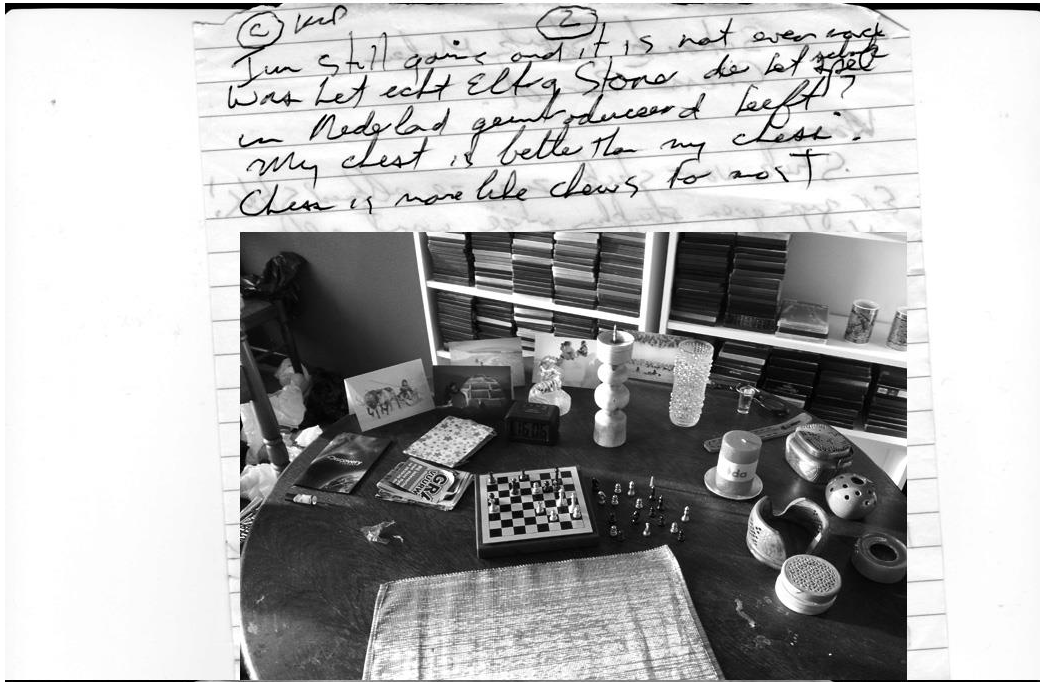 © KLP 2
I'm still going and it is not even work
Was het echt Elthg Stone die het schaak spel
in Nederlad geintroduceerd heeft?
My chest is bette than my chess.
Chess is more like chews for most.
16:06
GR
da